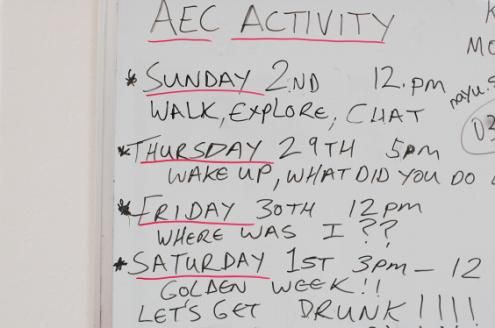 AEC ACTIVITY
* SUNDAY 2ND 12.pm
WALK, EXPLORE, CHAT
* THURSDAY 29TH 5pm
WAKE UP, WHAT DID YOU DO
* FRIDAY 30TH 12pm
WHERE WAS I ??
* SATURDAY 1ST 3pm - 12
GOLDEN WEEK!!
LET'S GET DRUNK !!!!